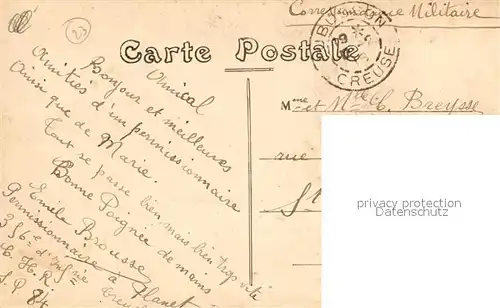 Correspondance Militaire
BU
CREUSE
Carte Postale
Amical
Bonjour et meilleures
Amitiés d'un permissionnaire
Ainsi que de Marie
Tout se passe bien mais bien trop vite
Bonne Poignée de mains
Emile Brousse
Permissionnaire à Planet
356e d'Inf rie
C. H. R.
S. P. 84
Mme et Mr Breysse
rue
St
privacy protection
watermark